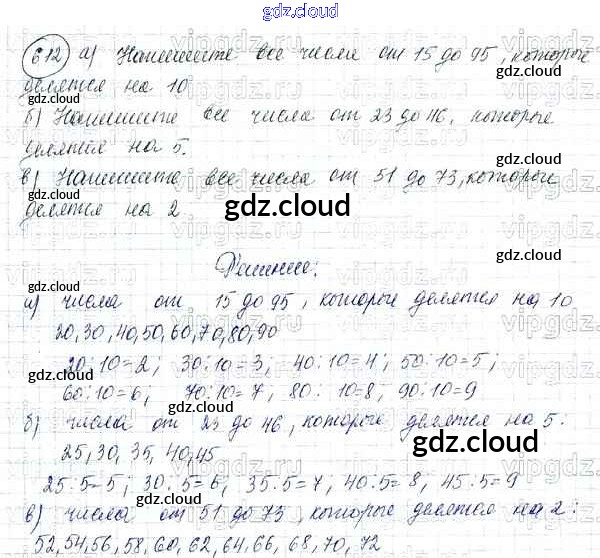 gdz.cloud
612 а) Напишите все числа от 15 до 95, которые
делятся на 10
gdz.cloud
б) Напишите все числа от 23 до 46, которые
делятся на 5.
gdz.cloud
в) Напишите все числа от 51 до 73, которые
делятся на 2
gdz.cloud
Решение:
а) числа от 15 до 95, которые делятся на 10
20, 30, 40, 50, 60, 70, 80, 90
20:10=2; 30:10=3; 40:10=4; 50:10=5;
60:10=6; 70:10=7; 80:10=8; 90:10=9
б) числа от 23 до 46, которые делятся на 5:
25, 30, 35, 40, 45
25:5=5; 30:5=6; 35:5=7; 40:5=8; 45:5=9
в) числа от 51 до 73, которые делятся на 2:
52, 54, 56, 58, 60, 62, 64, 66, 68, 70, 72